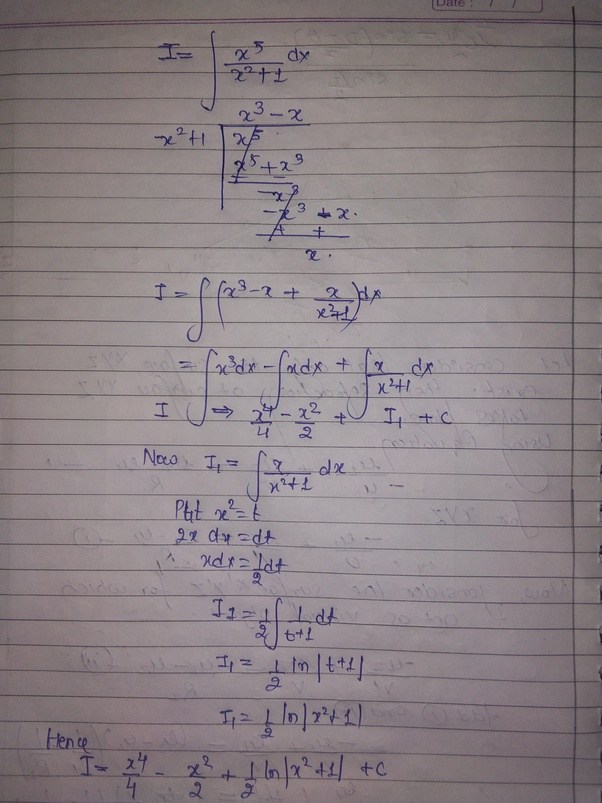 Date: / /
I = ∫ x⁵/(x²+1) dx
x³ - x
x²+1 | x⁵
x⁵ + x³
- -
-x³
-x³ - x.
+ +
x.
I = ∫ (x³ - x + x/(x²+1)) dx
= ∫ x³dx - ∫ xdx + ∫ x/(x²+1) dx
I ⇒ x⁴/4 - x²/2 + I₁ + c
Now I₁ = ∫ x/(x²+1) dx
Put x² = t
2x dx = dt
xdx = 1/2 dt
I1 = 1/2 ∫ 1/(t+1) dt
I₁ = 1/2 ln |t+1|
I₁ = 1/2 ln |x²+1|
Hence
I = x⁴/4 - x²/2 + 1/2 ln |x²+1| + c